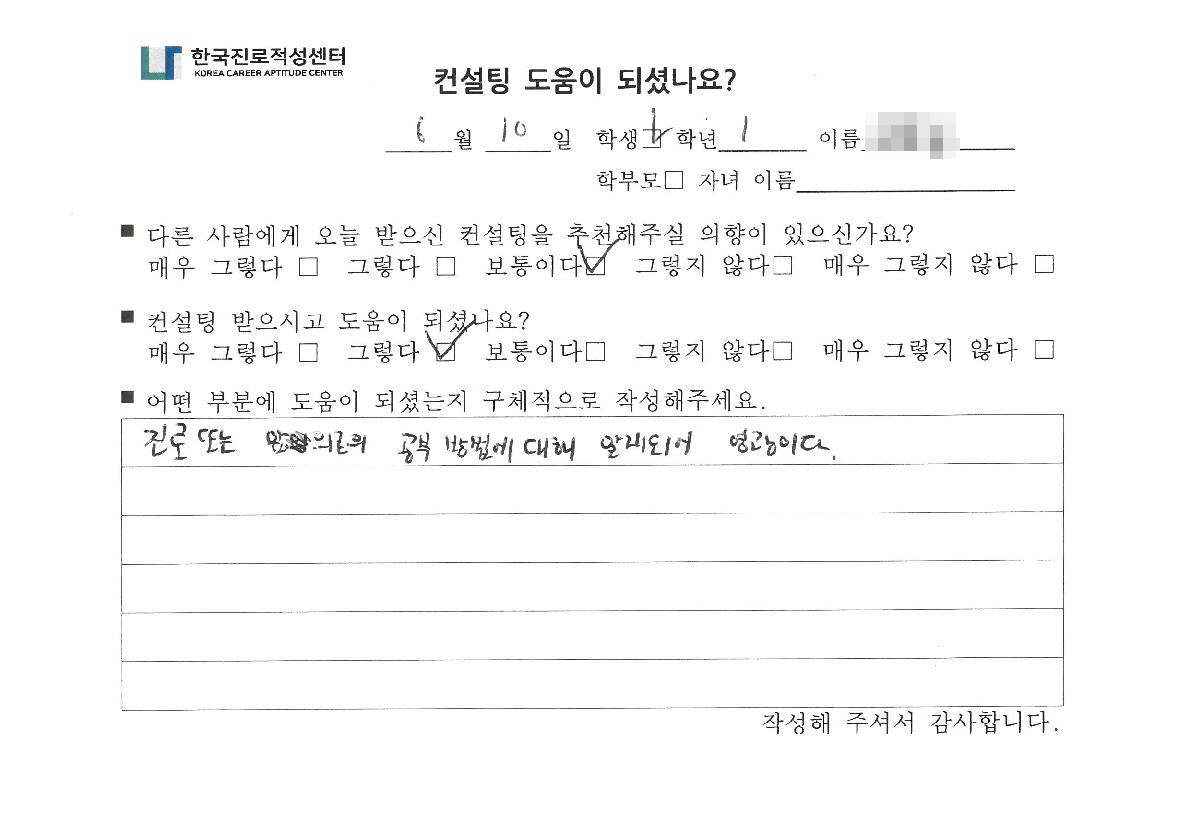 한국진로적성센터
KOREA CAREER APTITUDE CENTER
컨설팅 도움이 되셨나요?
6 월 10 일 학생 학년 1 이름
학부모□ 자녀 이름
■ 다른 사람에게 오늘 받으신 컨설팅을 추천해주실 의향이 있으신가요?
매우 그렇다 □ 그렇다 □ 보통이다☑ 그렇지 않다□ 매우 그렇지 않다 □
■ 컨설팅 받으시고 도움이 되셨나요?
매우 그렇다 □ 그렇다 ☑ 보통이다□ 그렇지 않다□ 매우 그렇지 않다 □
■ 어떤 부분에 도움이 되셨는지 구체적으로 작성해주세요.
진로 또는 공부 방법에 대해 알게되어 영광이다.
작성해 주셔서 감사합니다.